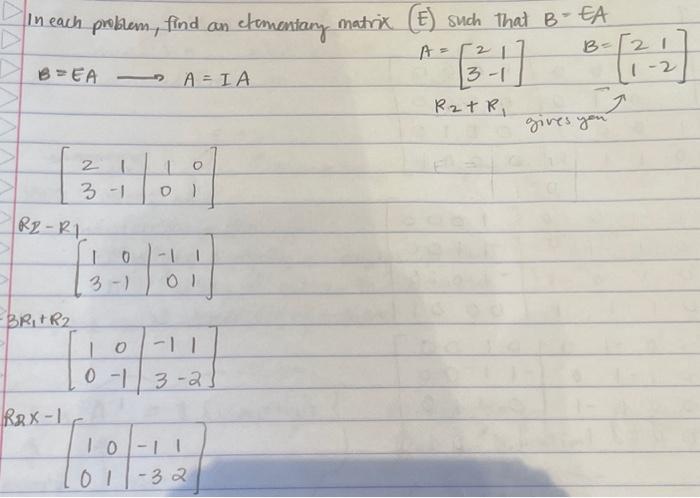 In each problem, find an elementary matrix (E) such that B = EA
A = [ 2 1 B = [ 2 1
3 -1 ] 1 -2 ]
B = EA → A = I A
R2 + R1 gives you
[ 2 1 | 1 0
3 -1 | 0 1 ]
R2 - R1
[ 1 0 | -1 1
3 -1 | 0 1 ]
3R1 + R2
[ 1 0 | -1 1
0 -1 | 3 -2 ]
R2 x -1
[ 1 0 | -1 1
0 1 | -3 2 ]